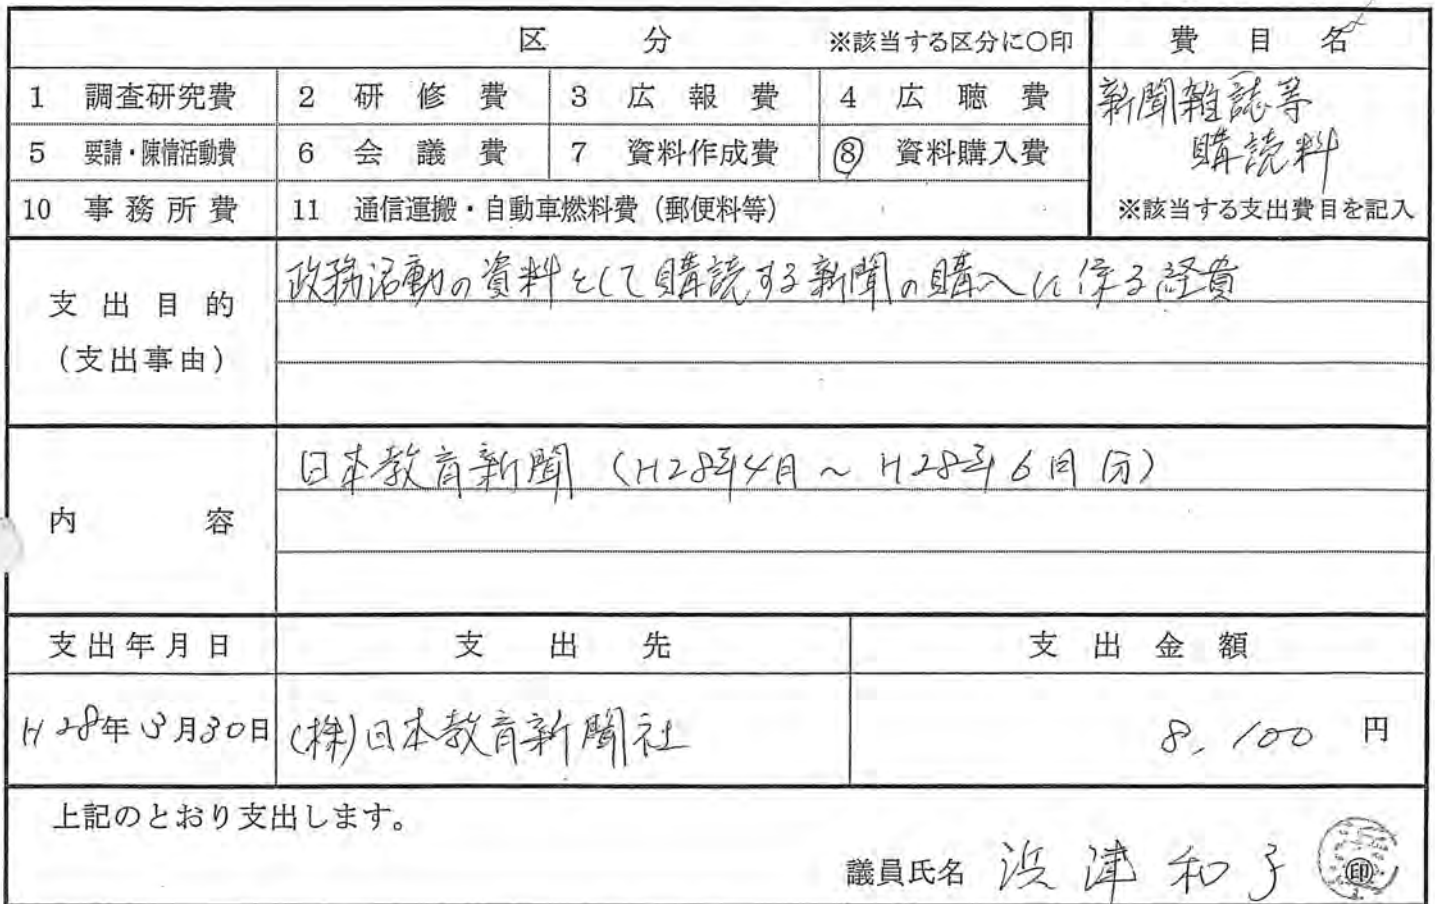 区 分 ※該当する区分に○印 費 目 名
1 調査研究費 2 研 修 費 3 広 報 費 4 広 聴 費 新聞雑誌等
5 要請・陳情活動費 6 会 議 費 7 資料作成費 ⑧ 資料購入費 購読料
10 事務所費 11 通信運搬・自動車燃料費（郵便料等） ※該当する支出費目を記入
支出目的 政務活動の資料として購読する新聞の購入に係る経費
（支出事由）
日本教育新聞（H28年4月～H28年6月分）
内 容
支出年月日 支 出 先 支 出 金 額
H28年3月30日 (株)日本教育新聞社 8,100 円
上記のとおり支出します。
議員氏名 浜津和子 印